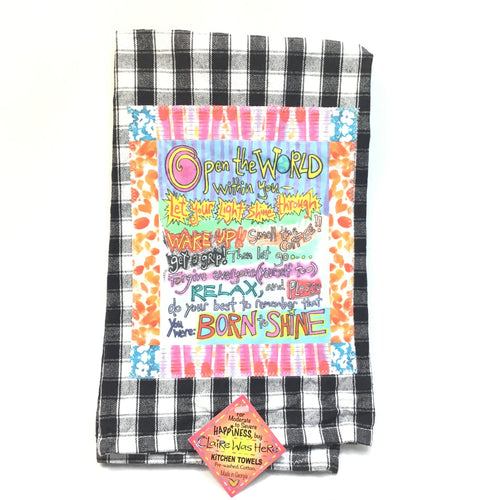 Open the WORLD
within you—
Let your light shine through
WAKE UP!! Smell the Coffee!!
get a grip! Then let go....
Forgive everyone (yourself too)
RELAX, and Please
do your best to remember that
you were: BORN to SHINE
FOR
Moderate
to Severe
HAPPINESS, buy
Claire Was Here
KITCHEN TOWELS
Pre-washed Cotton
Made in Georgia